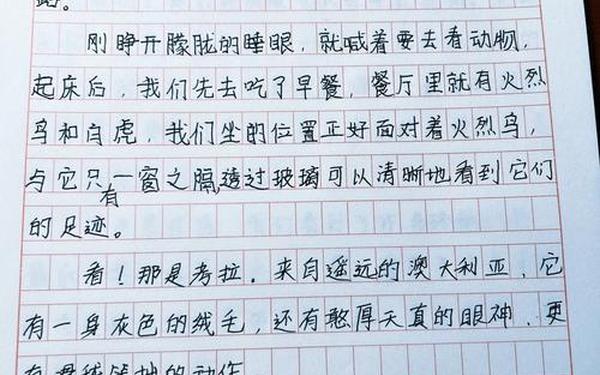 路。
刚睁开朦胧的睡眼，就喊着要去看动物，
起床后，我们先去吃了早餐，餐厅里就有火烈
鸟和白虎，我们坐的位置正好面对着火烈鸟，
与它只有一窗之隔，透过玻璃可以清晰地看到它们
的足迹。
看！那是考拉，来自遥远的澳大利亚，它
有一身灰色的绒毛，还有憨厚天真的眼神，更
的动作